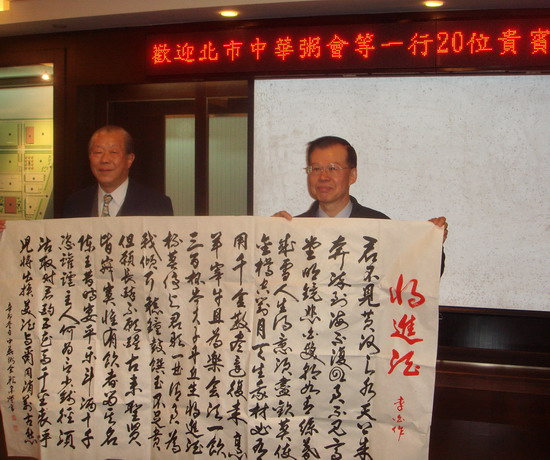 歡迎北市中華粥會等一行20位貴賓
將進酒
李白作
君不見黃河之水天上來
奔流到海不復回君不見高
堂明鏡悲白髮朝如青絲暮
成雪人生得意須盡歡莫使
金樽空對月天生我材必有
用千金散盡還復來烹
羊宰牛且為樂會須一飲
三百杯岑夫子丹丘生將進酒
杯莫停與君歌一曲請君為
我傾耳聽鐘鼓饌玉不足貴
但願長醉不願醒古來聖賢
皆寂寞惟有飲者留其名
陳王昔時宴平樂斗酒十千
恣讙謔主人何為言少錢徑須
沽取對君酌五花馬千金裘呼
兒將出換美酒與爾同消萬古愁